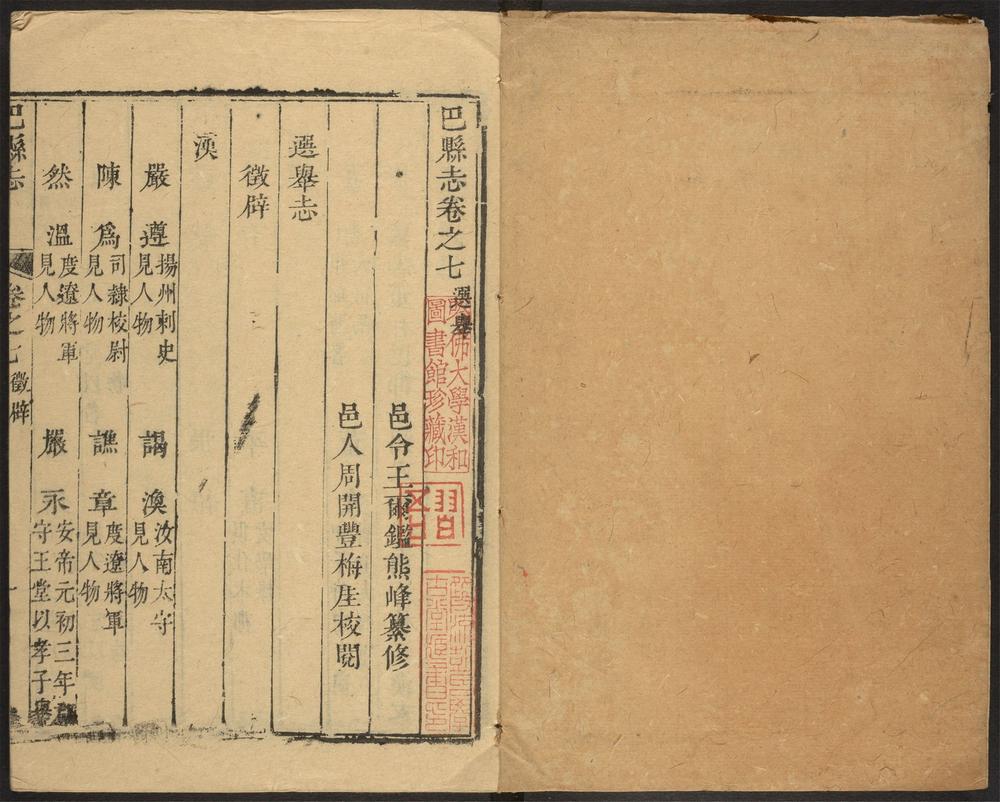 巴縣志卷之七 選舉
邑令王爾鑑熊峰纂修
邑人周開豐梅厓校閱
選舉志
徵辟
漢
嚴遵 揚州刺史見人物 謁渙 汝南太守見人物
陳為 司隸校尉見人物 譙章 度遼將軍見人物
然溫 度遼將軍見人物 嚴永 安帝元初三年守王堂以孝子舉
巴縣志 卷之七 徵辟 一
哈佛大學漢和
圖書館珍藏印